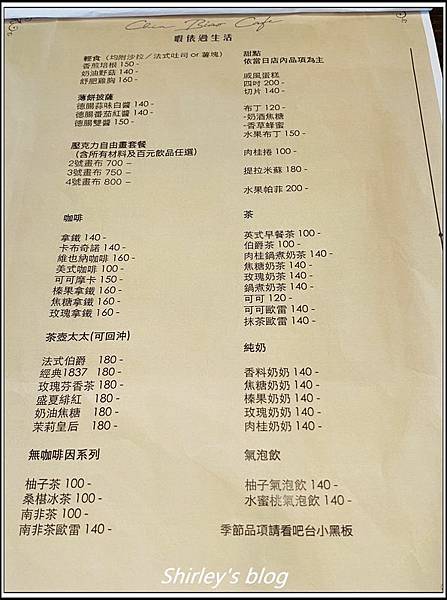 Chin Biao Cafe
暇俵過生活
輕食(均附沙拉/法式吐司or薯塊)
香煎培根 150-
奶油野菇 140-
舒肥雞胸 160-
薄餅披薩
德腸蒜味白醬 140-
德腸番茄紅醬 140-
德腸雙醬 150-
壓克力自由畫套餐
(含所有材料及百元飲品任選)
2號畫布 700-
3號畫布 750-
4號畫布 800-
咖啡
拿鐵 140-
卡布奇諾 140-
維也納咖啡 160-
美式咖啡 100-
可可摩卡 150-
榛果拿鐵 160-
焦糖拿鐵 160-
玫瑰拿鐵 160-
茶壺太太(可回沖)
法式伯爵 180-
經典1837 180-
玫瑰芬香茶 180-
盛夏緋紅 180-
奶油焦糖 180-
茉莉皇后 180-
無咖啡因系列
柚子茶 100-
桑椹冰茶 100-
南非茶 100-
南非茶歐雷 140-
甜點
依當日店內品項為主
戚風蛋糕
四吋 200-
切片 140-
布丁 120-
-奶酒焦糖
-香草蜂蜜
水果布丁 150-
肉桂捲 100-
提拉米蘇 180-
水果帕菲 200-
茶
英式早餐茶 100-
伯爵茶 100-
肉桂鍋煮奶茶 140-
焦糖奶茶 140-
玫瑰奶茶 140-
鍋煮奶茶 140-
可可 120-
可可歐雷 140-
抹茶歐雷 140-
純奶
香料奶奶 140-
焦糖奶奶 140-
榛果奶奶 140-
玫瑰奶奶 140-
肉桂奶奶 140-
氣泡飲
柚子氣泡飲 140-
水蜜桃氣泡飲 140-
季節品項請看吧台小黑板
Shirley's blog